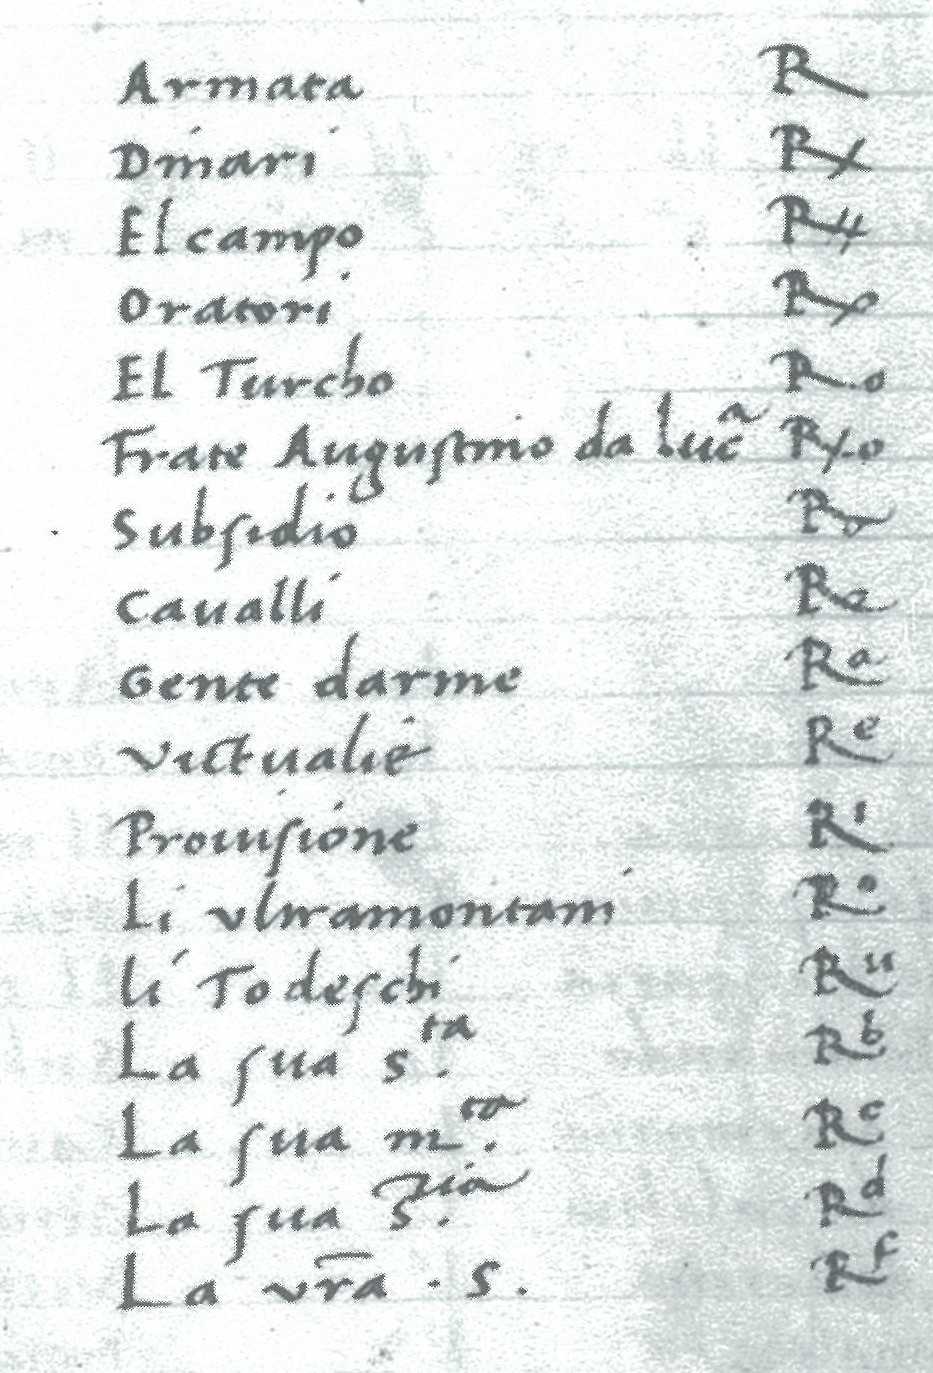 Armata R
Dinari Rx
El campo R4
Oratori Rp
El Turcho R.o
Frate Augustino da Luca Rx.o
Subsidio R
Cavalli R2
Gente darme Ra
Victualie Re
Provisione Ri
Li ultramontani Ro
li Todeschi Ru
La sua s.ta Rb
La sua m.ta Rc
La sua S.ria Rd
La vra . S. Rf